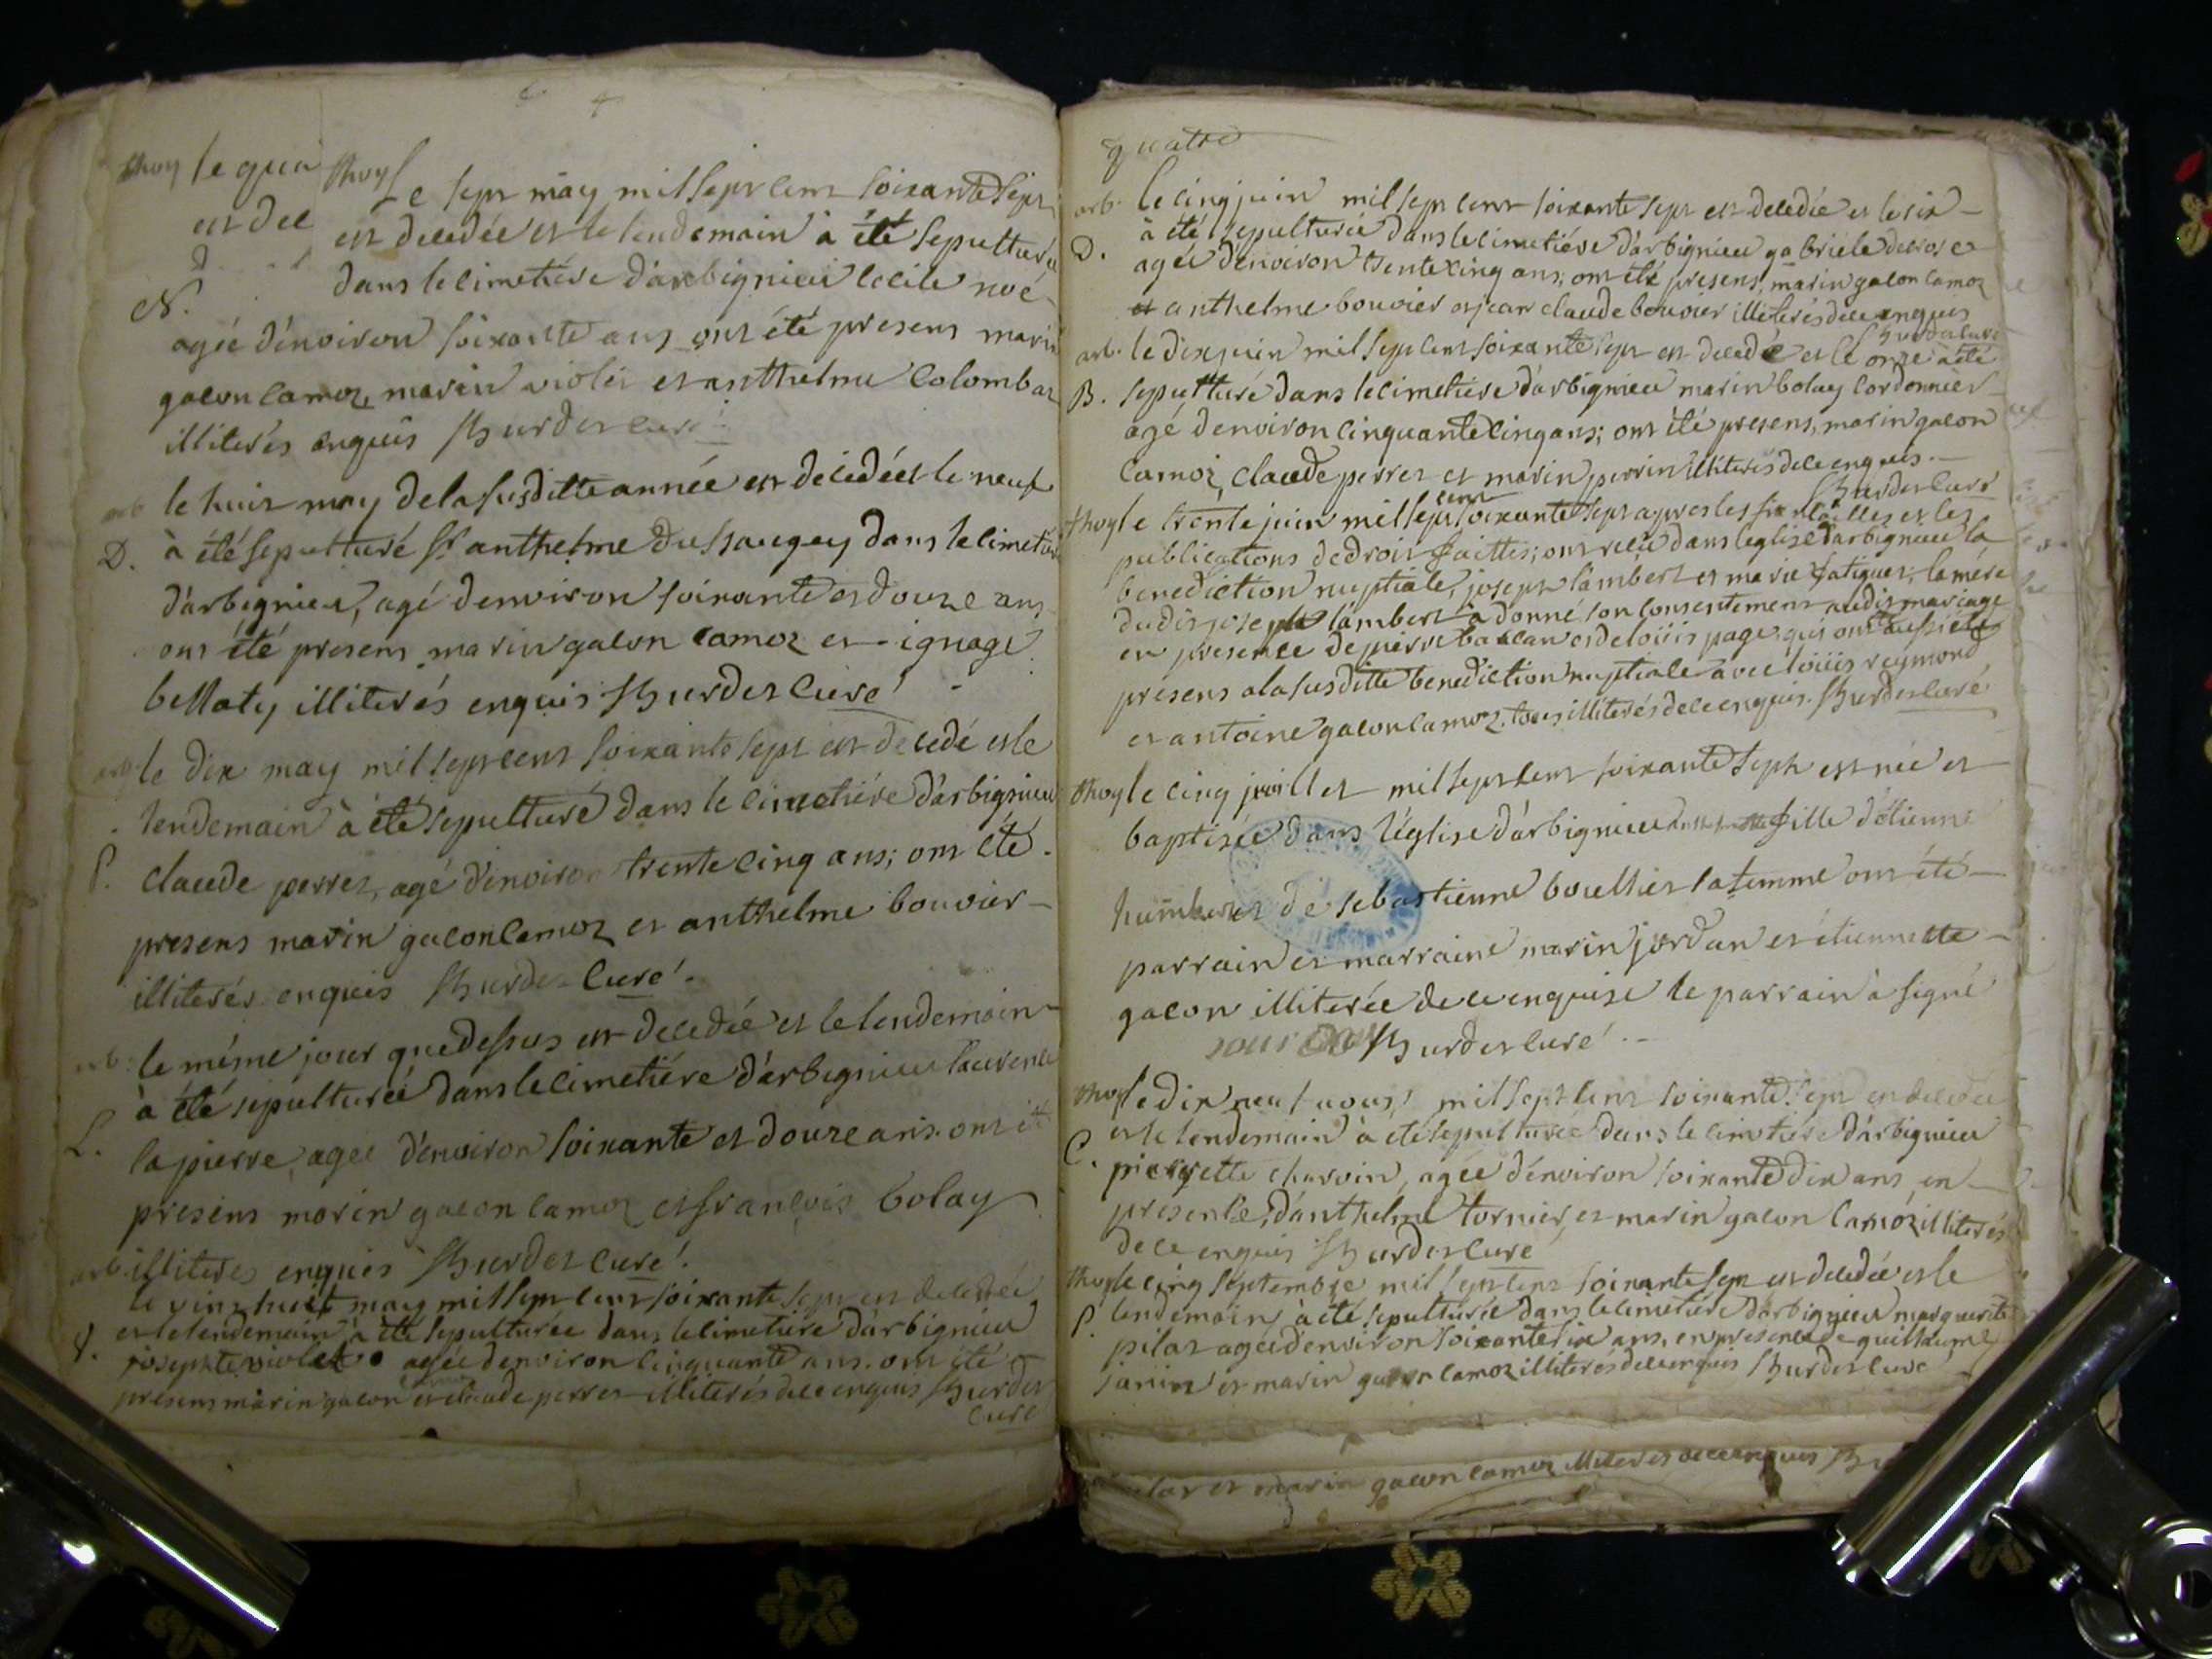 4
thoy le qua
est dec
thoy Le sept may mil sept cent soixante sept
est decedée et le lendemain à été sepulturée
N. dans le cimetiére d'arbignieu cecile noé
agée d'environ soixante ans ont été presens marin
galon camoz, marin violet et anthelme Colombaz
illiterés enquis hurdes curé
arb le huit may de la susditte année est decedé et le neuf
D. à été sepulturé sr anthelme du saugey dans le cimetiére
d'arbignieu, agé d'environ soixante et douze ans
ont été presens marin galon camoz et ignage
bellaty illiterés enquis hurdes curé
arb. le dix may mil sept cent soixante sept est decedé et le
lendemain à été sepulturé dans le cimetiére d'arbignieu
P. claude perret, agé d'environ trente cinq ans; ont été
presens marin galon camoz et anthelme bouvier
illiterés enquis hurdes curé.
arb. le méme jour que dessus est decedée et le lendemain
à été sépulturée dans le cimetiére d'arbignieu laurence
L. la pierre, agée d'environ soixante et douze ans. ont été
presens marin galon camoz et françois bolay
arb. illiteres enquis hurdes curé.
le vint huit may mil sept cent soixante sept est decedée
et le lendemain à été sepulturée dans le cimetiére d'arbignieu
V. josephte violet agée d'environ cinquante ans. ont été
presens marin galon camoz et claude perret illiterés de ce enquis hurdes
curé
quatre
arb. le cinq juin mil sept cent soixante sept est decedée et le six
à été sepulturée dans le cimetiére d'arbignieu gabriele derose
D. agée d'environ trente cinq ans; ont été presens, marin galon camoz
et anthelme bouvier et jean claude bouvier illiterés de ce enquis
hurdes curé
arb. le dix juin mil sept cent soixante sept est decedé et le onze à été
B. sepulturé dans le cimetiére d'arbignieu marin bolay cordonnier
agé d'environ cinquante cinq ans; ont été presens, marin galon
camoz, claude perret et marin perrin illiterés de ce enquis.
hurdes curé
thoy le trente juin mil sept cent soixante sept apres les fiançailles et les
publications de droit faittes; ont reçu dans leglise d'arbignieu la
benediction nuptiale, joseph lambert et marie fatiguet; la mére
dudit joseph lambert à donné son consentement audit mariage
en presence de pierre et de loüis page, qui ont aussi été
presens a la susditte benediction nuptiale avec loüis reymond
et antoine galon camoz. tous illiterés de ce enquis. hurdes curé
thoy le cinq juillet mil sept cent soixante sept est née et
baptisée dans l'église d'arbignieu fille d'étienne
humbert et de sebastienne boullier sa femme ont été
parrain et marraine marin jordan et étiennette
galon illiterée de ce enquise le parrain à signé
hurdes curé.
thoy le dix neuf aoust mil sept cent soixante sept est decedée
et le lendemain à été sepulturée dans le cimetiére d'arbignieu
C. pierrette charvin, agée d'environ soixante dix ans, en
presence, d'anthelme tornier, et marin galon camoz illiterés
de ce enquis hurdes curé
thoy le cinq septembre mil sept cent soixante sept est decedée et le
P. lendemain à été sepulturée dans le cimetiére d'arbignieu marguerite
pilat agée d'environ soixante six ans, en presence de guillaume
janin et marin galon camoz illiterés de ce enquis hurdes curé
et marin galon camoz illiterés de ce enquis